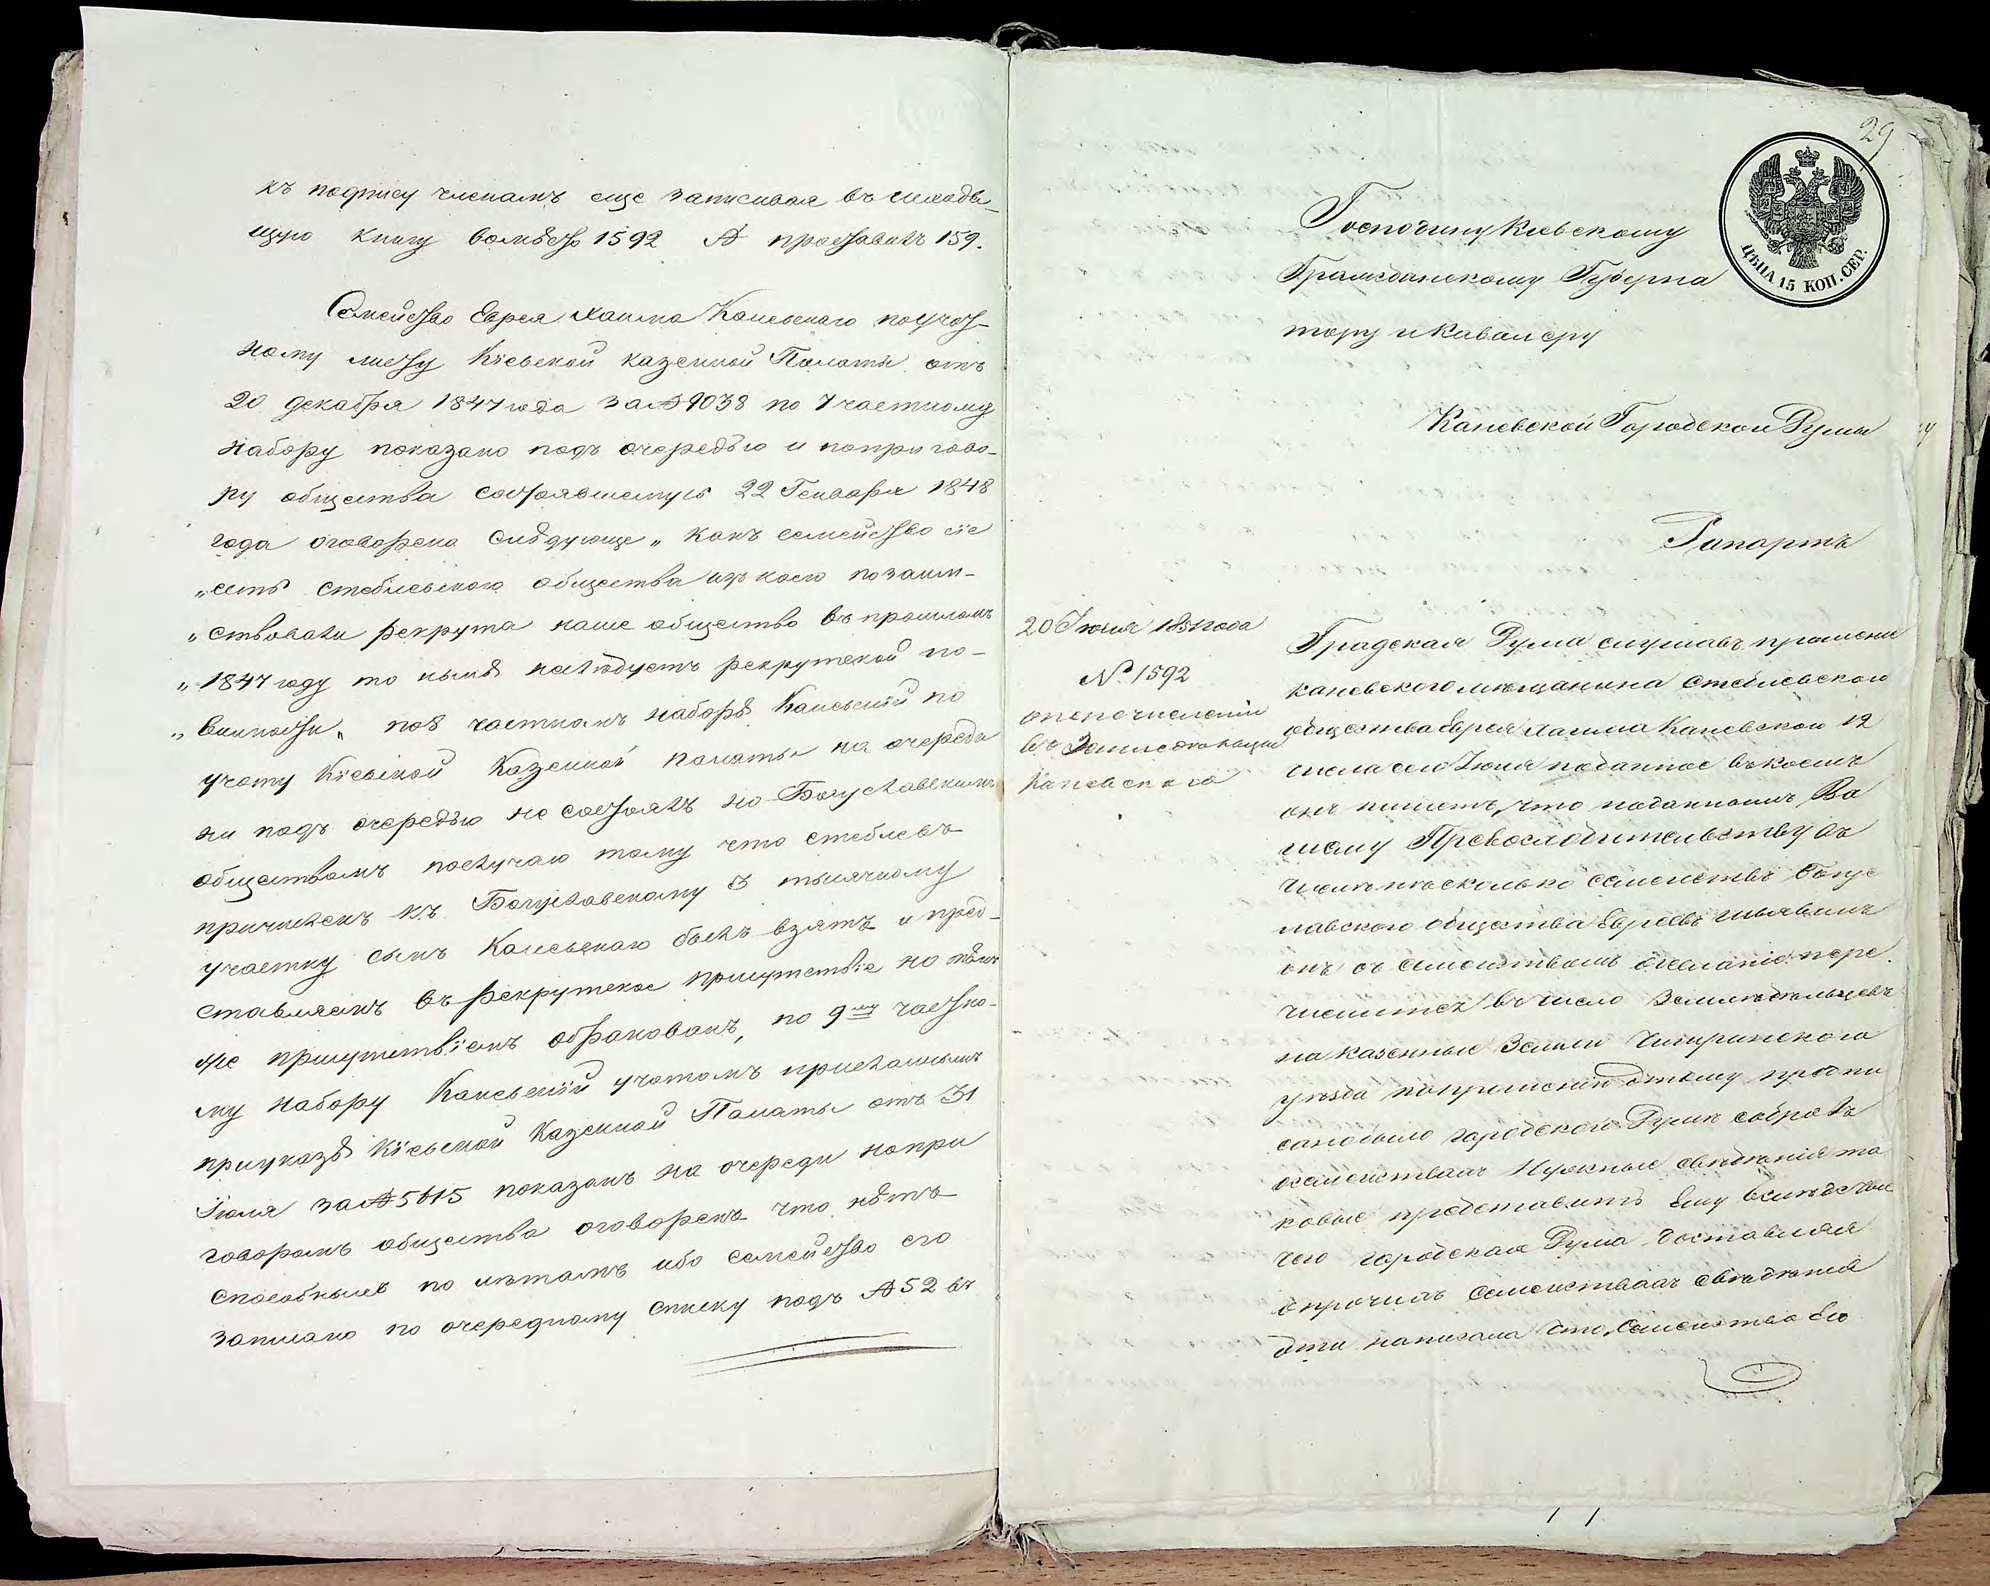 къ подпису членамъ еще записивая въ исходя-
щую книгу вомѣсто 1592 № проставитъ 159.
Семейство Еврея Хаима Каневскаго поучот-
ному листу Кіевской казенной Палаты отъ
20 декабря 1847 года за № 9038 по 7 частному
набору показано подъ очередью и попригово-
ру общества состоявшемуся 22 Генваря 1848
года оговорено слѣдующе „ какъ семейство сіе
„ есть стеблевскаго общества изъ коего позаим-
„ ствовали рекрута наше общество въ прошломъ
„ 1847 году то нынѣ не слѣдуетъ рекрутской по-
„ винности „ по 8 частномъ наборѣ Каневскій по
учоту Кіевской Казенной Палаты на очереди
ни подъ очередью не состоялъ но Богуславскимъ
обществомъ по случаю тому что стеблевъ
причисленъ къ Богуславскому 3 тысячному
участку сынъ Каневскаго былъ взятъ и пред-
ставляемъ въ рекрутское присутствіе но тѣмъ
же присутствіемъ обракованъ, по 9му частно-
му набору Каневскій учотомъ присланнымъ
приуказѣ Кіевской Казенной Палаты отъ 31
Іюля за № 5615 показанъ на очереди но при
говоромъ общества оговоренъ что нѣтъ
способныхъ по лѣтамъ ибо семейство его
записано по очередному списку подъ № 52 въ
29
ЦѢНА 15 КОП. СЕР.
Господину Киевскому
Гражданскому Губерна
тору и Кавалеру
Каневской Городской Думы
Рапортъ
20 Июня 1851 года
№ 1592
Каневского
Градская Дума слушавъ прошение
каневского мещанина Стеблевского
общества Еврея Хаима Каневского 12
числа сего Июня поданное вкоемъ
онъ пишетъ, что поданномъ Ва
шему Превосходительству въ
числе несколько семействъ Богус
лавского общества Евреевъ изъявилъ
онъ съ семействомъ желание пере
числится в число Земледельцевъ
на казенные Земли Чигиринского
уезда
сано было городской Думе собрать
осемействах нужные сведения та
ковые представить Ему вследствие
чего городская Дума доставляя
опрочихъ семействахъ сведения
написала что семейство Его